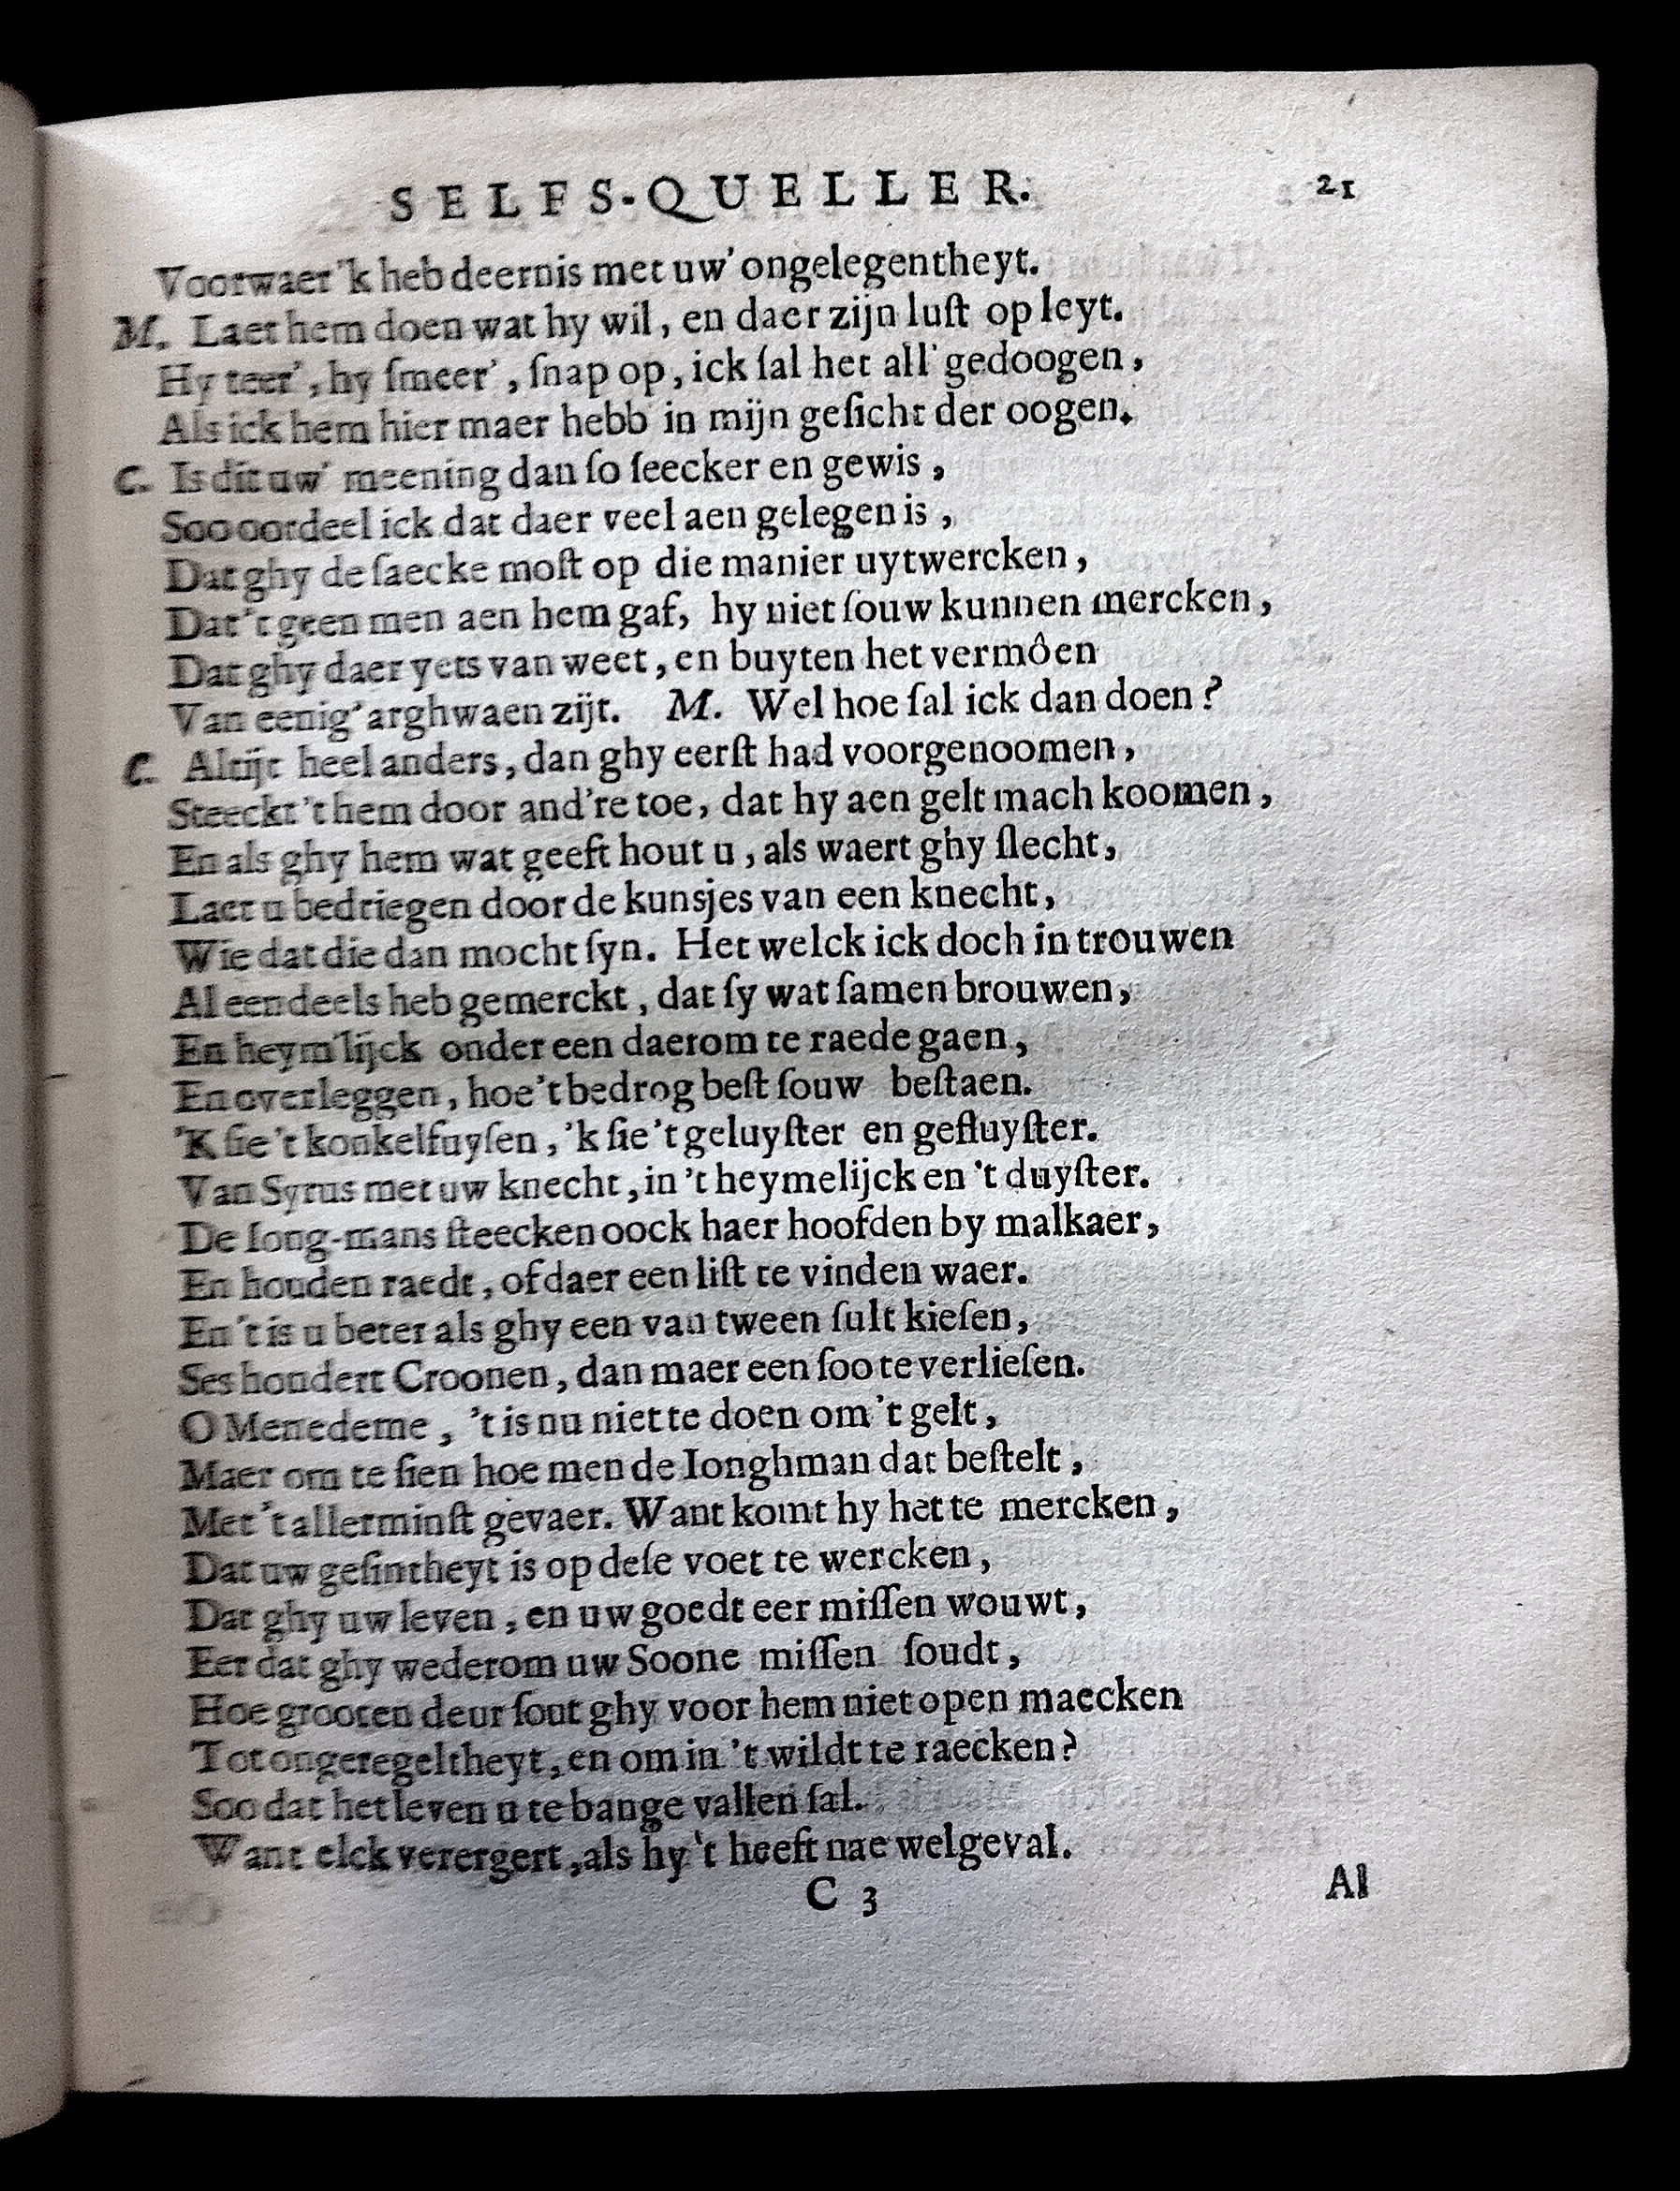 SELFS-QUELLER. 21
Voorwaer 'k heb deernis met uw' ongelegentheyt.
M. Laet hem doen wat hy wil, en daer zijn luſt op leyt.
Hy teer', hy ſmeer', ſnap op, ick ſal het all' gedoogen,
Als ick hem hier maer hebb' in mijn geſicht der oogen.
C. Is dit uw' meening dan ſo ſeecker en gewis,
Soo oordeel ick dat daer veel aen gelegen is,
Dat ghy de ſaecke moſt op die manier uytwercken,
Dat 't geen men aen hem gaf, hy niet ſouw kunnen mercken,
Dat ghy daer yets van weet, en buyten het vermôen
Van eenig' arghwaen zijt. M. Wel hoe ſal ick dan doen?
C. Altijt heel anders, dan ghy eerſt had voorgenoomen,
Steeckt 't hem door and're toe, dat hy aen gelt mach koomen,
En als ghy hem wat geeft hout u, als waert ghy ſlecht,
Laet u bedriegen door de kunsjes van een knecht,
Wie dat die dan mocht ſyn. Het welck ick doch in trouwen
Al eendeels heb gemerckt, dat ſy wat ſamen brouwen,
En heym'lijck onder een daerom te raede gaen,
En overleggen, hoe 't bedrog beſt ſouw beſtaen.
'K ſie 't konkelfuyſen, 'k ſie 't geluyſter en gefluyſter.
Van Syrus met uw knecht, in 't heymelijck en 't duyſter.
De Iong-mans ſteecken oock haer hoofden by malkaer,
En houden raedt, of daer een liſt te vinden waer.
En 't is u beter als ghy een van tween ſult kieſen,
Ses hondert Croonen, dan maer een ſoo te verlieſen.
O Menedeme, 't is nu niet te doen om 't gelt,
Maer om te ſien hoe men de Ionghman dat beſtelt,
Met 't allerminſt gevaer. Want komt hy het te mercken,
Dat uw geſintheyt is op deſe voet te wercken,
Dat ghy uw leven, en uw goedt eer miſſen wouwt,
Eer dat ghy wederom uw Soone miſſen ſoudt,
Hoe grooten deur ſout ghy voor hem niet open maecken
Tot ongeregeltheyt, en om in 't wildt te raecken?
Soo dat het leven u te bange vallen ſal.
Want elck verergert, als hy 't heeft nae welgeval.
C 3 Al